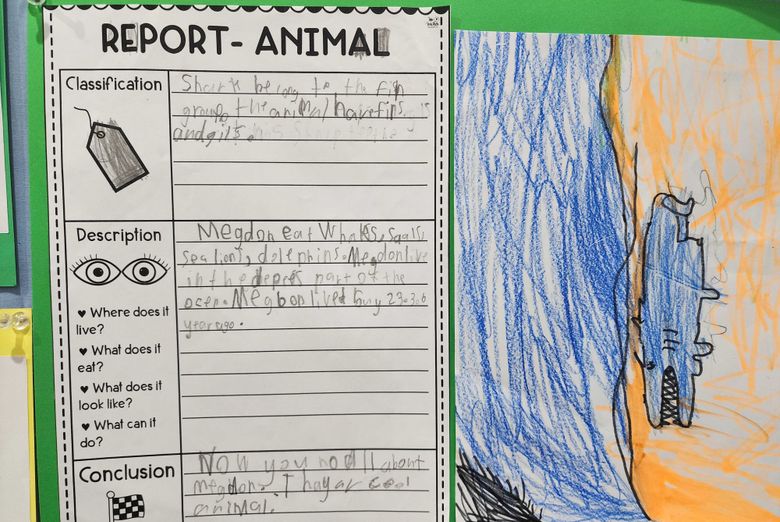 REPORT- ANIMAL
Classification
Sharks belong to the fish
group the animal have fins
and gils.
Description
Megdon eat Whales, seals,
sea lions, dolphins. Megdon live
in the depest part of the
ocen. Megbon lived
years ago.
♥ Where does it
live?
♥ What does it
eat?
♥ What does it
look like?
♥ What can it
do?
Conclusion
Now you all about
megdons. T hay ar cool
animal.